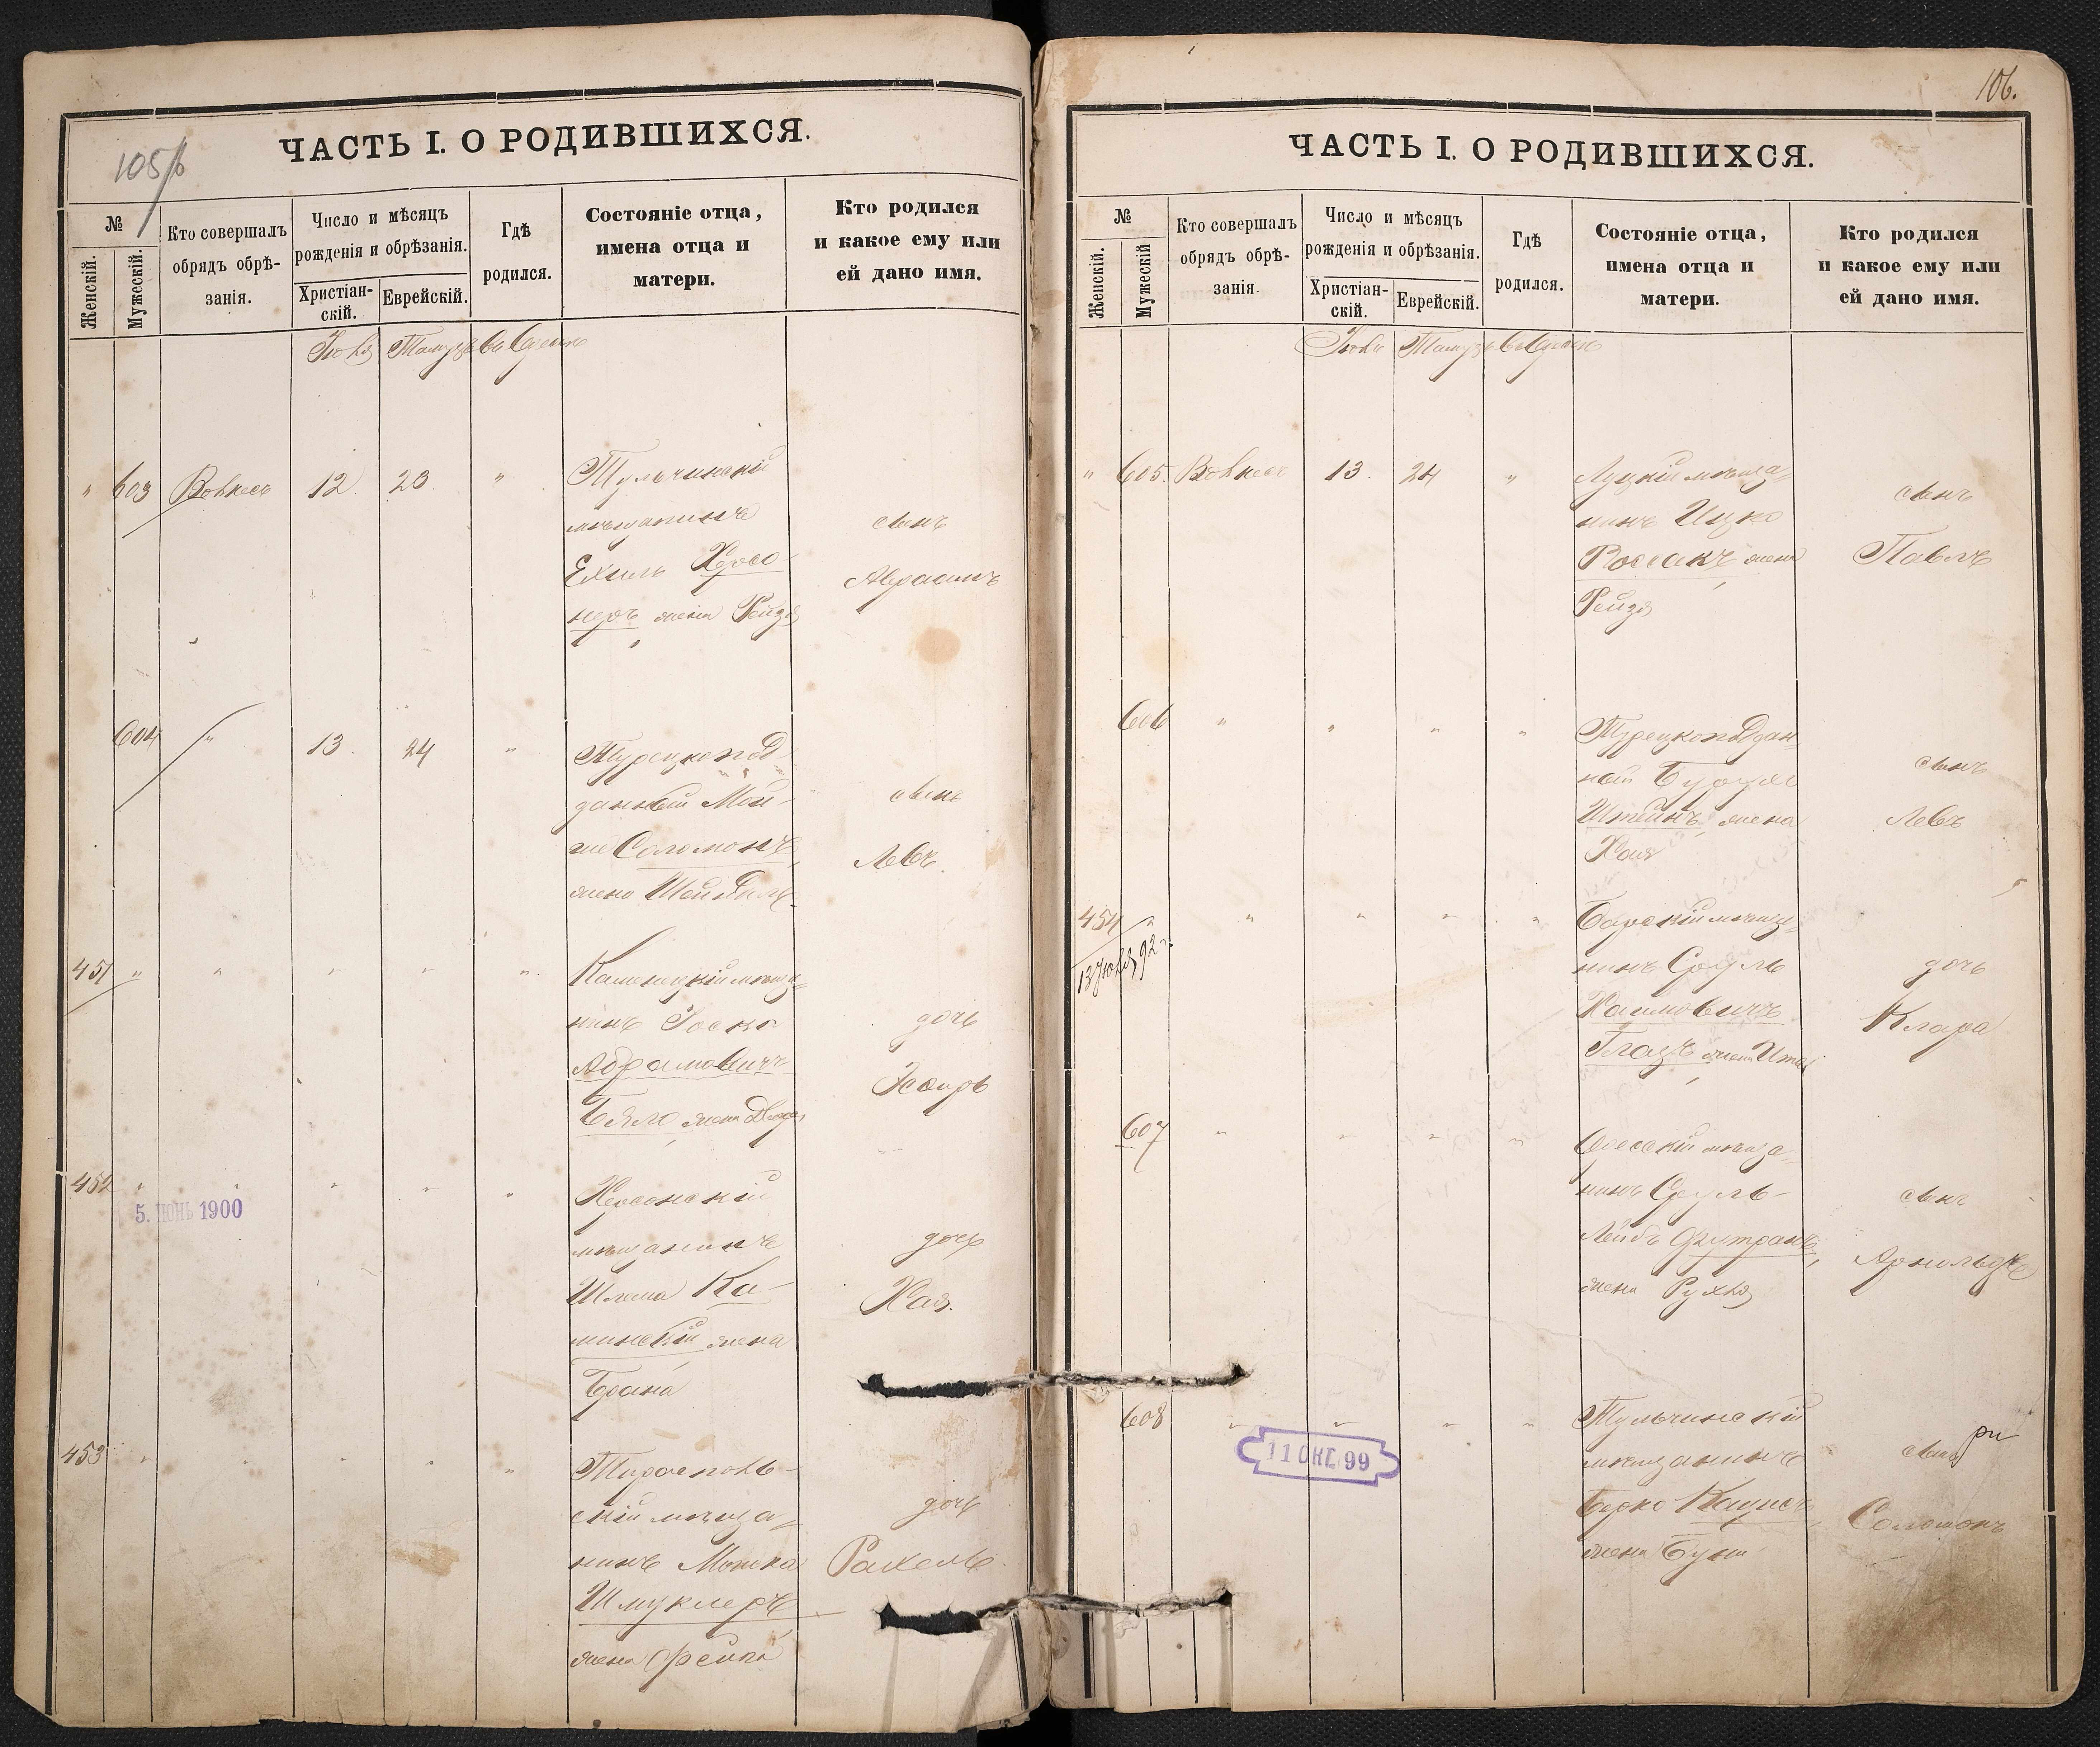 105/б
ЧАСТЬ I. О РОДИВШИХСЯ.
№
Женскій.
Мужескій.
Кто совершалъ
обрядъ обрѣ-
занія.
Число и мѣсяцъ
рожденія и обрѣзанія.
Христіан-
скій.
Еврейскій.
Гдѣ
родился.
Состояніе отца,
имена отца и
матери.
Кто родился
и какое ему или
ей дано имя.
Іюля Тамузъ въ Одессѣ
" 603 Вовкесъ 12 23 "
Тульчинскій
мѣщанинъ
Ехиль Херсо-
неръ жена Рейзя
сынъ
Абрамъ
604 " 13. 24 "
Турецкопод-
данный Мой-
ше Соломонъ,
жена
сынъ
Левъ.
451 " " " " "
Каменецкій мѣща-
нинъ Іосько
Абрамовичъ
Бяло жена Двойра
дочь
Эсѳирь
452 " " " " "
5. ІЮНЬ 1900
Херсонскій
мѣщанинъ
Шлема Ка-
минскій жена
Брана
дочь
Хая.
453 " " " " "
Тирасполь-
скій мѣща-
нинъ Мошка
Шмуклеръ
жена Фейга
дочь
Рахель
106.
ЧАСТЬ I. О РОДИВШИХСЯ.
№
Женскій.
Мужескій
Кто совершалъ
обрядъ обрѣ-
занія.
Число и мѣсяцъ
рожденія и обрѣзанія.
Христіан-
скій.
Еврейскій.
Гдѣ
родился.
Состояніе отца,
имена отца и
матери.
Кто родился
и какое ему или
ей дано имя.
Іюля Тамузъ въ Одессѣ
" 605. Вовкесъ 13. 24 "
Луцкій мѣща-
нинъ Ицко
Россакъ жена
Рейзя
сынъ
Павлъ
606 " " " "
Турецкоподдан-
ный Бурухъ
Штейнъ, жена
Хая
сынъ
Левъ
454 " " " " "
13 Июля 92 г.
Барскій мѣща-
нинъ Сруль
Хаимовичъ
Глазъ жена Ита
дочь
Клара
607 " " " "
Одесскій мѣща-
нинъ Сруль-
Лейбъ Фитранъ,
жена Рухля
сынъ
Арнольдъ
608 " " " "
11 ОКТ. 99
Тульчинскій
мѣщанинъ
Берко Каунсъ,
жена Буня
сынъ
Соломонъ